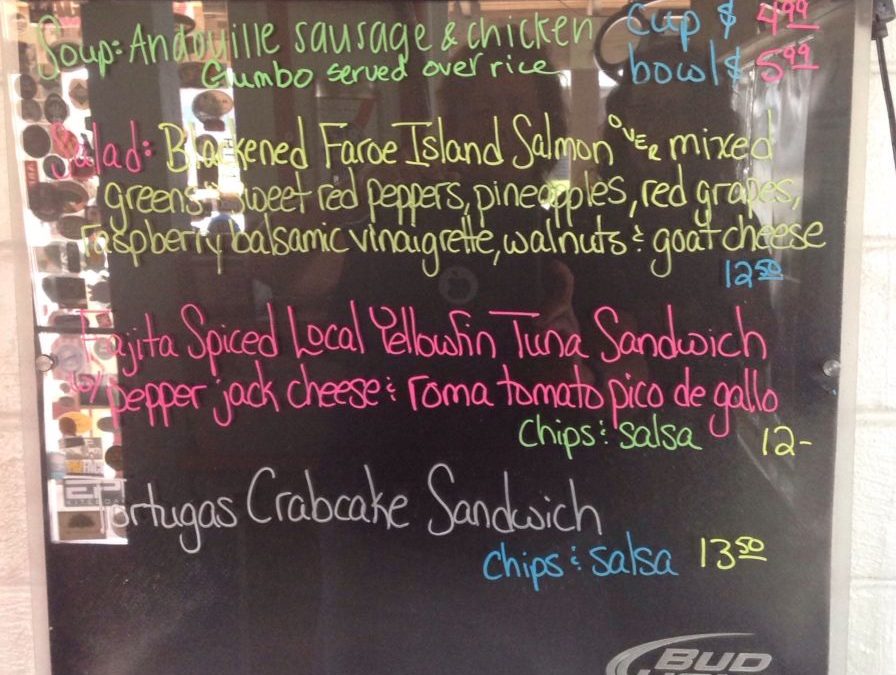 Soup: Andouille sausage & chicken cup $ 4.99
Gumbo served over rice bowl $ 5.99
Salad: Blackened Faroe Island Salmon OVER mixed
greens & sweet red peppers, pineapples, red grapes,
raspberry balsamic vinaigrette, walnuts & goat cheese
12 50
Fajita Spiced Local Yellowfin Tuna Sandwich
w/ pepper jack cheese & roma tomato pico de gallo
chips & salsa 12-
Tortugas Crabcake Sandwich
chips & salsa 13 50
BUD